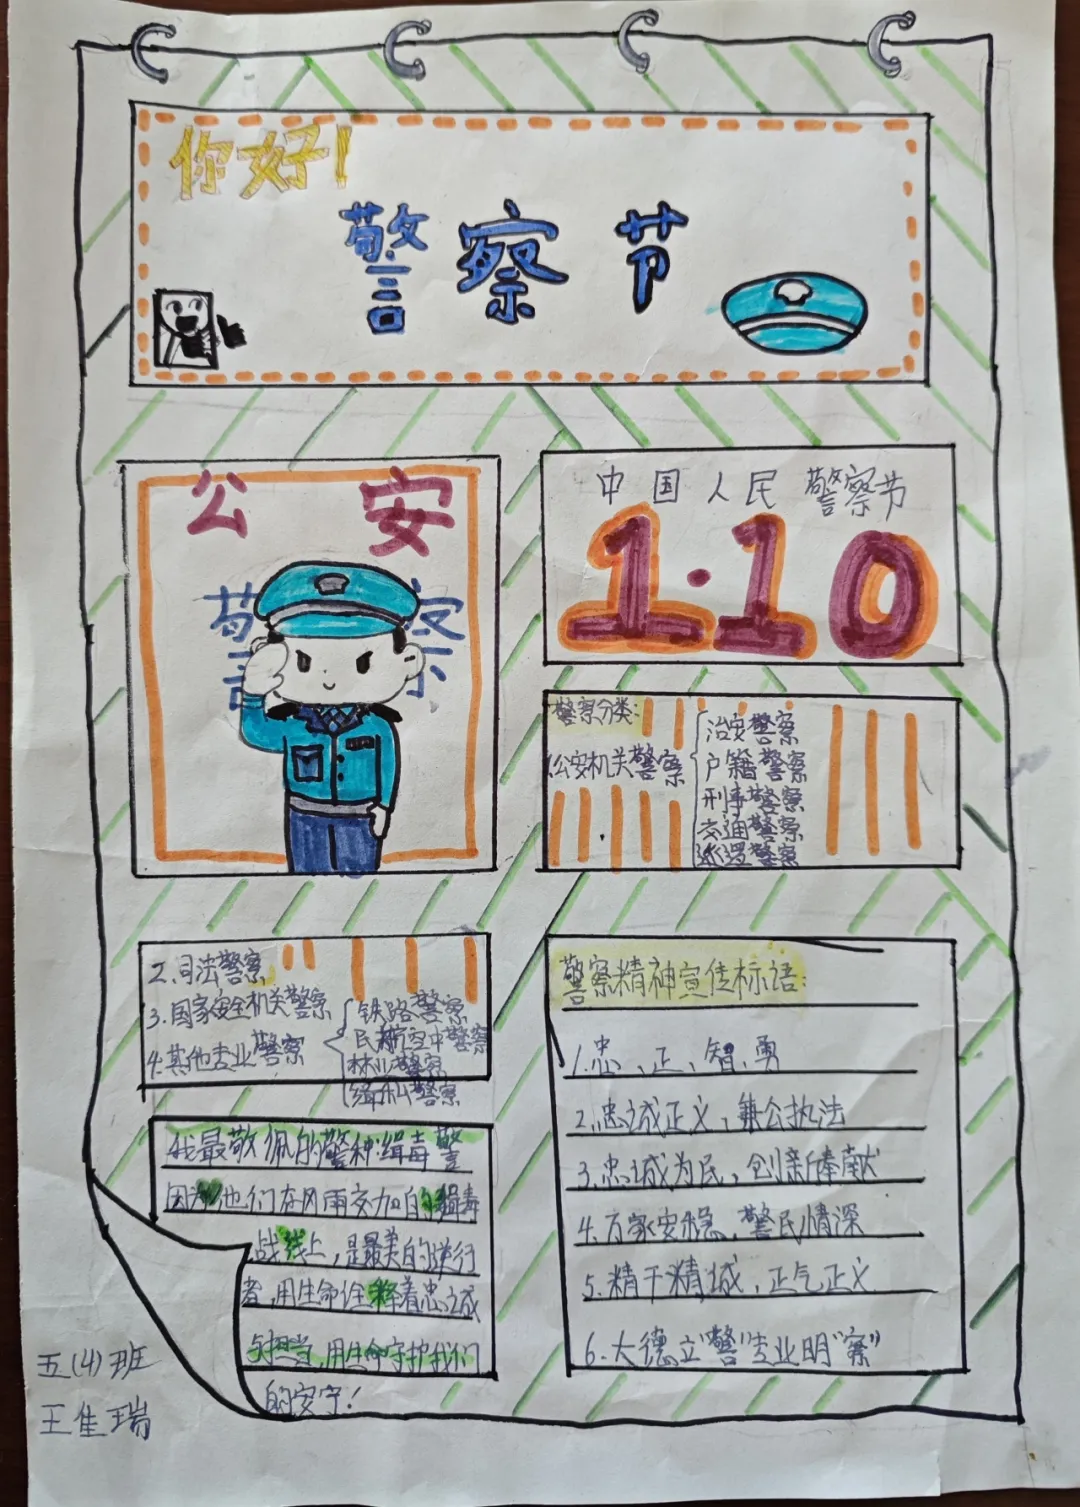 你好!
警察节
公安
警察
中国人民警察节
1·10
警察分类:
公安机关警察
治安警察
户籍警察
刑事警察
交通警察
巡逻警察
2.司法警察
3.国家安全机关警察
4.其他专业警察
铁路警察
民航空中警察
林业警察
缉私警察
我最敬佩的警种:缉毒警
因为他们在风雨交加的缉毒
战线上,是最美的逆行
者,用生命诠释着忠诚
与担当,用生命守护我们
的安宁!
警察精神宣传标语:
1.忠、正、智、勇
2.忠诚正义,兼公执法
3.忠诚为民,创新奉献
4.万家安稳,警民情深
5.精干精城,正气正义
6.大德立"警"专业明"察"
五(4)班
王隹瑞